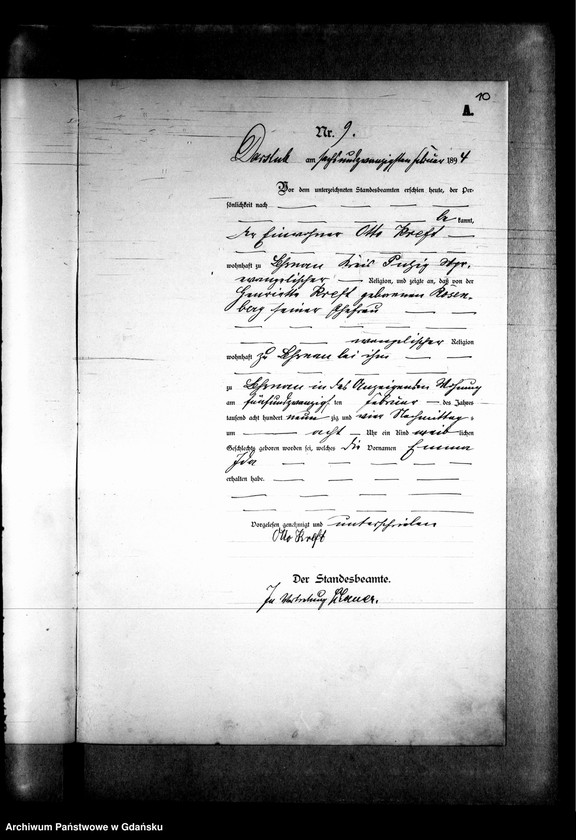 10
A.
Nr. 9.
Darslub am sechsundzwanzigsten Februar 1894
Vor dem unterzeichneten Standesbeamten erschien heute, der Per-
sönlichkeit nach
be kannt,
der Einwohner Otto Kreft
wohnhaft zu Kreis Putzig
evangelischer Religion, und zeigte an, daß von der
Henriette Kreft geborenen Rosen-
berg seiner Ehefrau
evangelischer Religion
wohnhaft zu bei ihm
zu in des Anzeigenden Wohnung
am fünfundzwanzig ten Februar des Jahres
tausend acht hundert neun zig und vier Nachmittag s
um acht Uhr ein Kind weib lichen
Geschlechts geboren worden sei, welches die Vornamen Emma
Ida
erhalten habe.
Vorgelesen genehmigt und unterschrieben
Otto Kreft
Der Standesbeamte.
In Vertretung
Archiwum Państwowe w Gdańsku